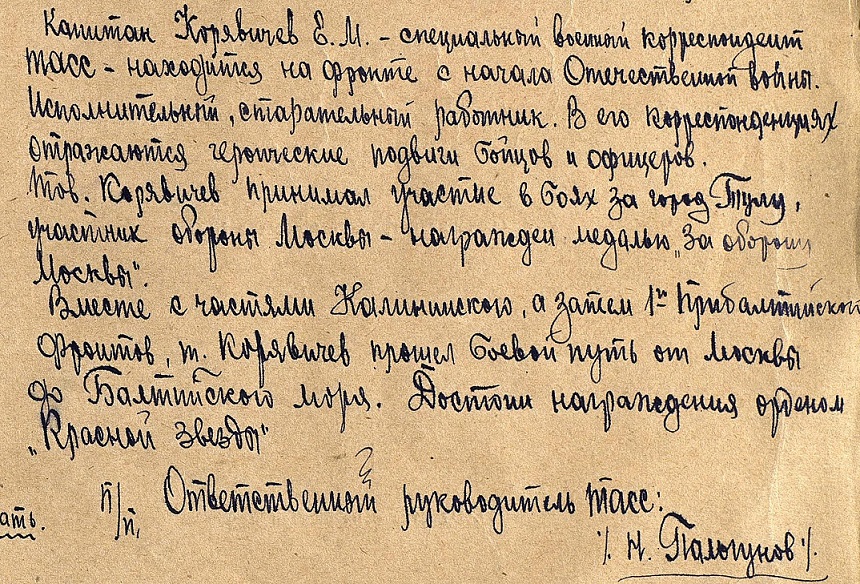 Капитан Корявичев Е.М. – специальный военный корреспондент
ТАСС – находится на фронте с начала Отечественной войны.
Исполнительный, старательный работник. В его корреспонденциях
отражаются героические подвиги бойцов и офицеров.
Тов. Корявичев принимал участие в боях за город Тулу,
участник обороны Москвы – награжден медалью „За оборону
Москвы".
Вместе с частями Калининского, а затем 1го Прибалтийского
Фронтов, т. Корявичев прошел боевой путь от Москвы
до Балтийского моря. Достоин награждения орденом
„Красной Звезды"
п/п. Ответственный руководитель ТАСС:
ать.
/. Н. Пальгунов /.